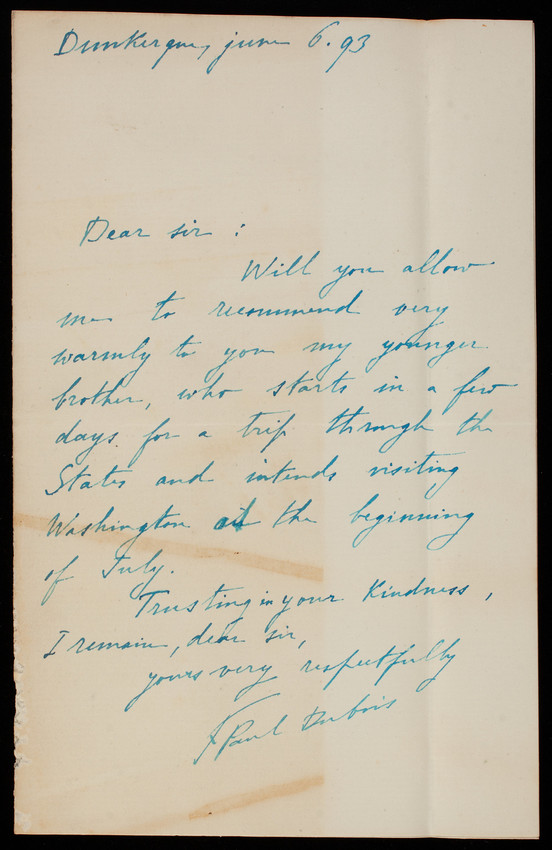 Dunkerque, june 6. 93
Dear sir :
Will you allow
me to recommend very
warmly to you my younger
brother, who starts in a few
days. for a trip through the
States and intends visiting
Washington at the beginning
of July.
Trusting in your Kindness,
I remain, dear sir,
yours very respectfully
Paul Dubois